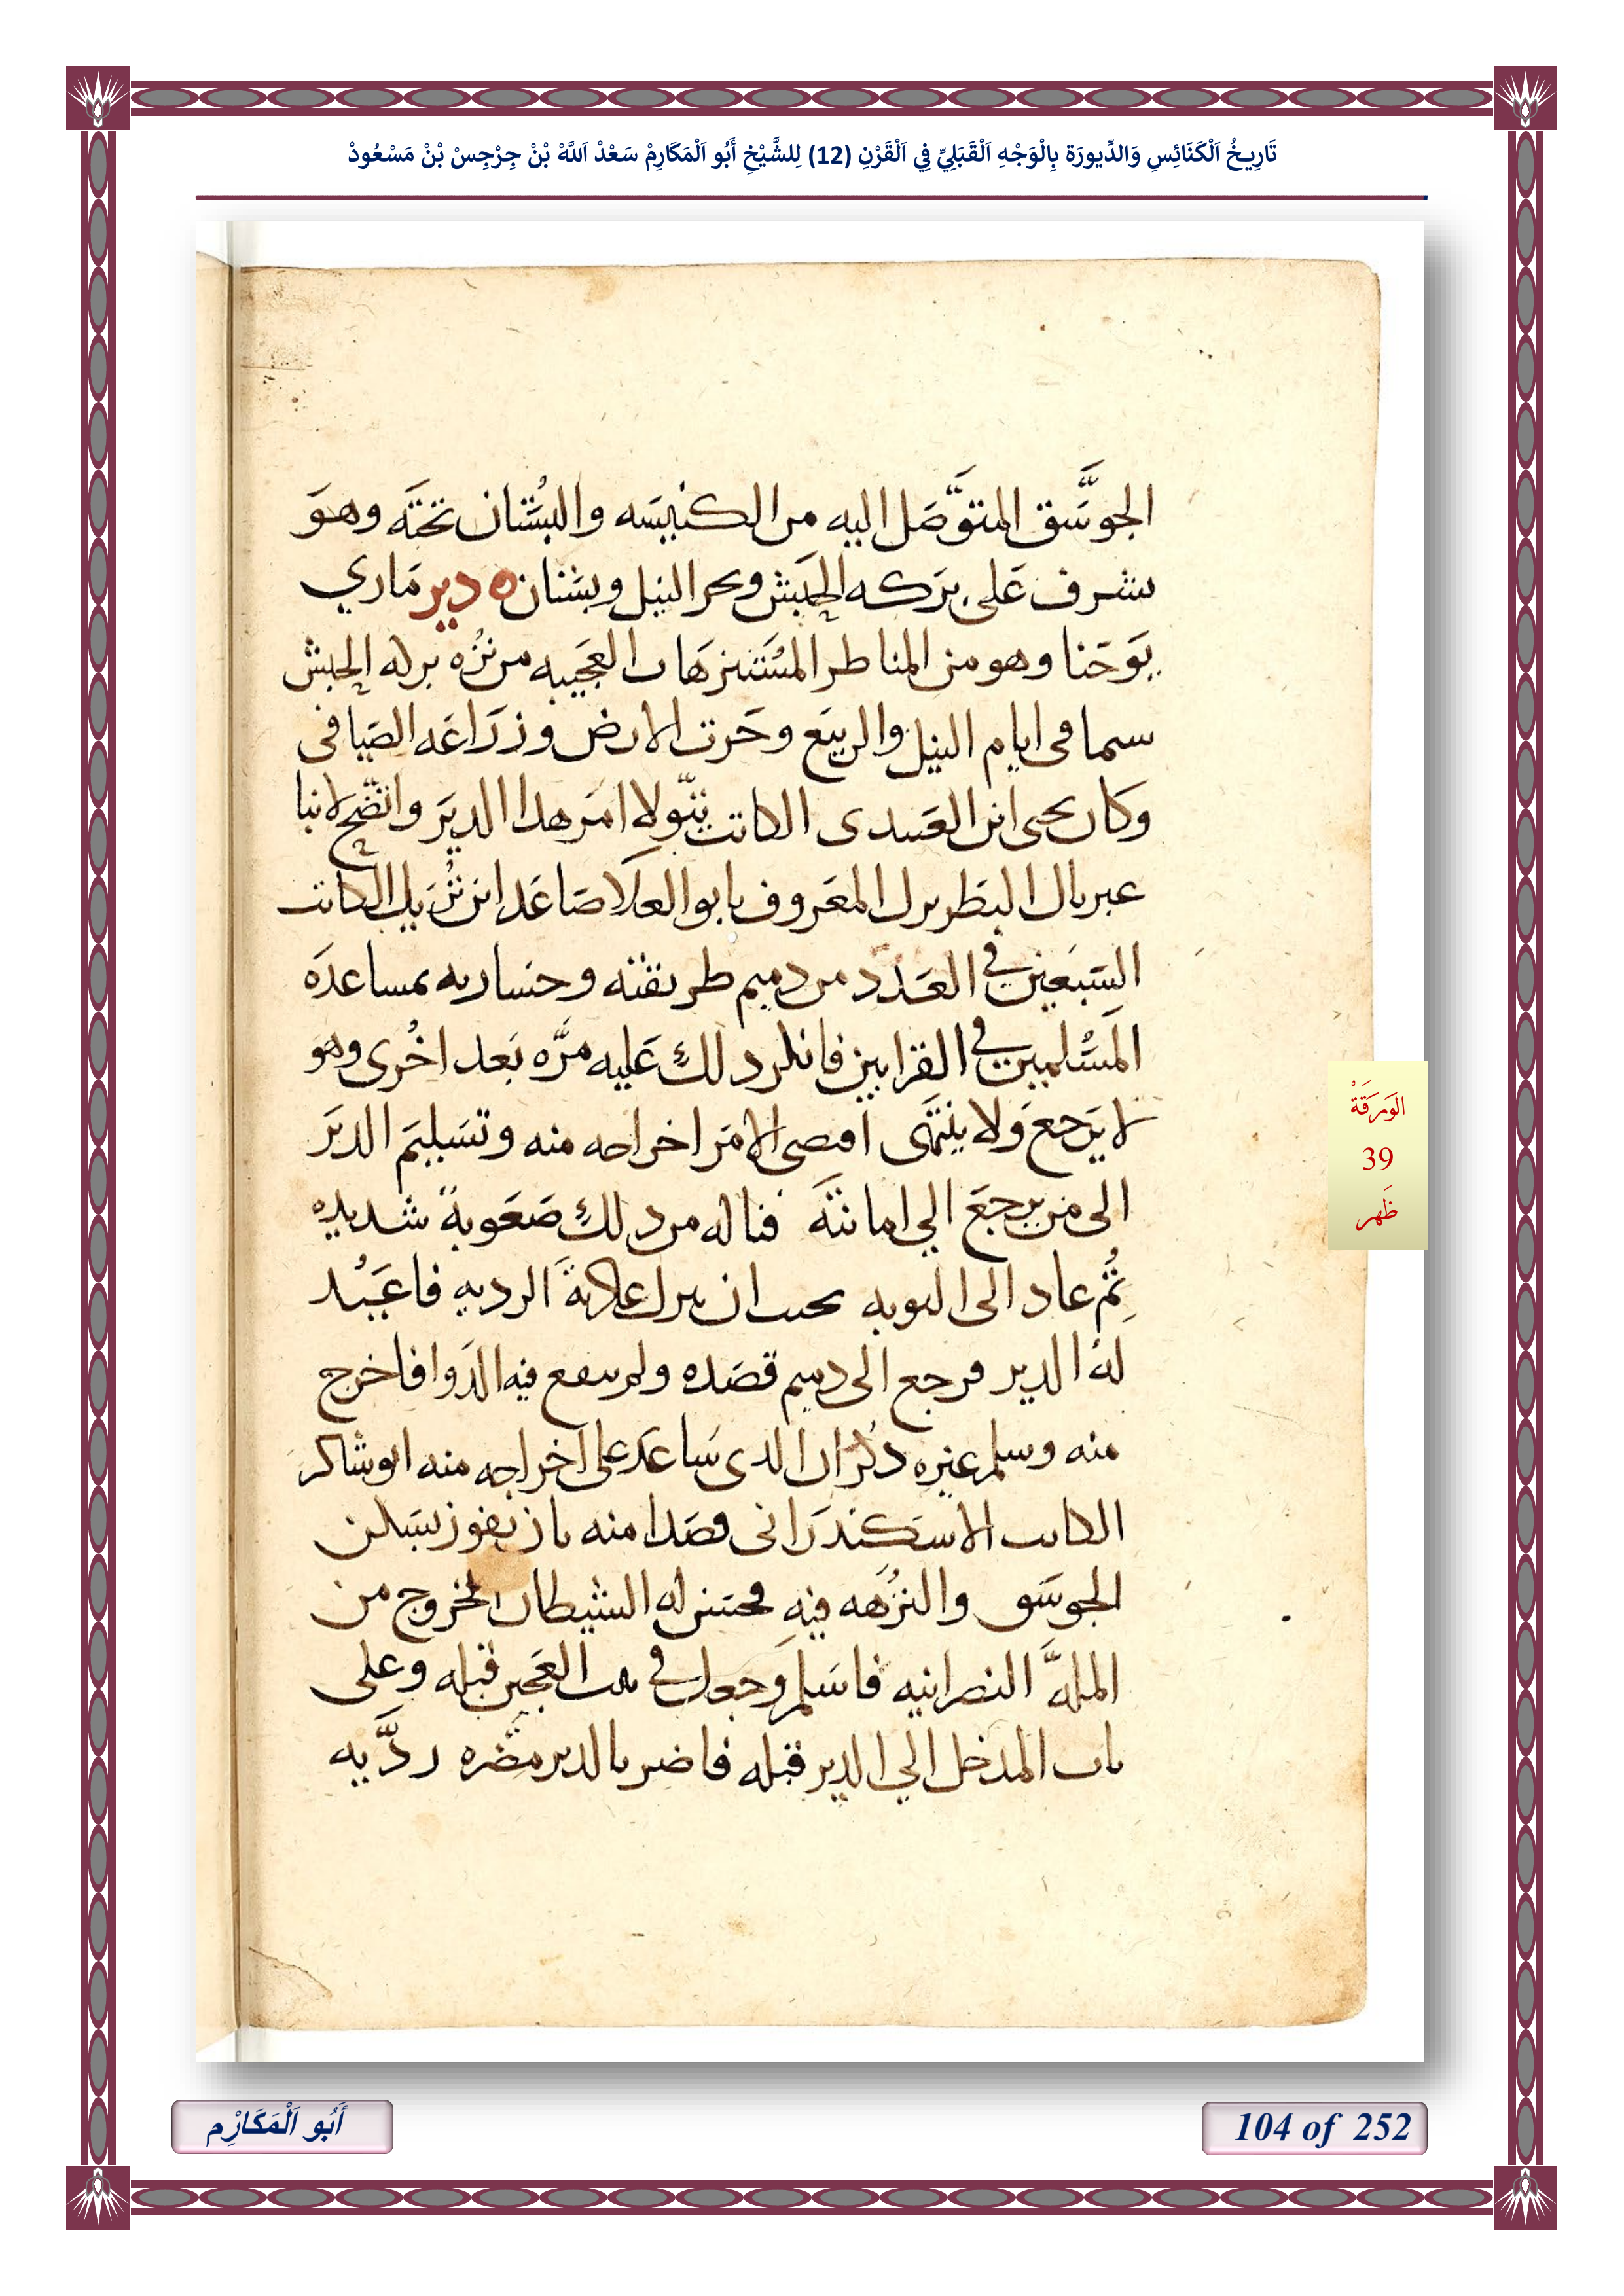 تَارِيخُ اَلْكَنَائِسِ وَالدِّيورَة بِالْوَجْهِ اَلْقَبَلِيِّ فِي اَلْقَرْنِ (12) لِلشَّيْخِ أَبُو اَلْمَكَارِمْ سَعْدْ اَللَّهْ بْنْ جِرْجِسْ بْنْ مَسْعُودْ
الجوسق المتوصل اليه من الكنيسه والبستان تحته وهو
يشرف على بركه الحبش وبحر النيل وبستان ه دير ماري
يوحنا وهو من المناطر المستنزهات العجيبه من نزه بركه الحبش
سيما فى ايام النيل والربيع وحرت الارض وزراعه الصيافى
وكان يحيى ابن العبيدى الكاتب يتولا امر هدا الدير واتضح لانبا
غبريال البطريرك المعروف بابو العلا صاعد ابن تريك الكاتب
السبعين في العدد من دميم طريقته وخسارته بمساعده
المسلمين في القرابين فانكر دلك عليه مره بعد اخرى وهو
لا يرجع ولا ينتهى اقتصى الامر اخراجه منه وتسليم الدير
الى من يرجع الي امانته فناله من دلك صعوبة شديده
ثم عاد الى التوبه بحيث ان يترك عادته الرديه فاعيد
له الدير فرجع الى دميم قصده ولم ينفع فيه الدوا فاخرج
منه وسلم لغيره دكر ان الدى ساعد على اخراجه منه ابو شاكر
الكاتب الاسكندرانى قصدا منه بان يفوز بسكن
الجوسق والنزهه فيه فحسن له الشيطان الخروج من
المله النصرانيه فاسلم وجعل في بيت العجين قبله وعلى
باب المدخل الي الدير قبله فاضر بالدير مضره رديه
الوَرَقَةْ
39
ظَهر
أَبُو اَلْمَكَارِْم
104 of 252